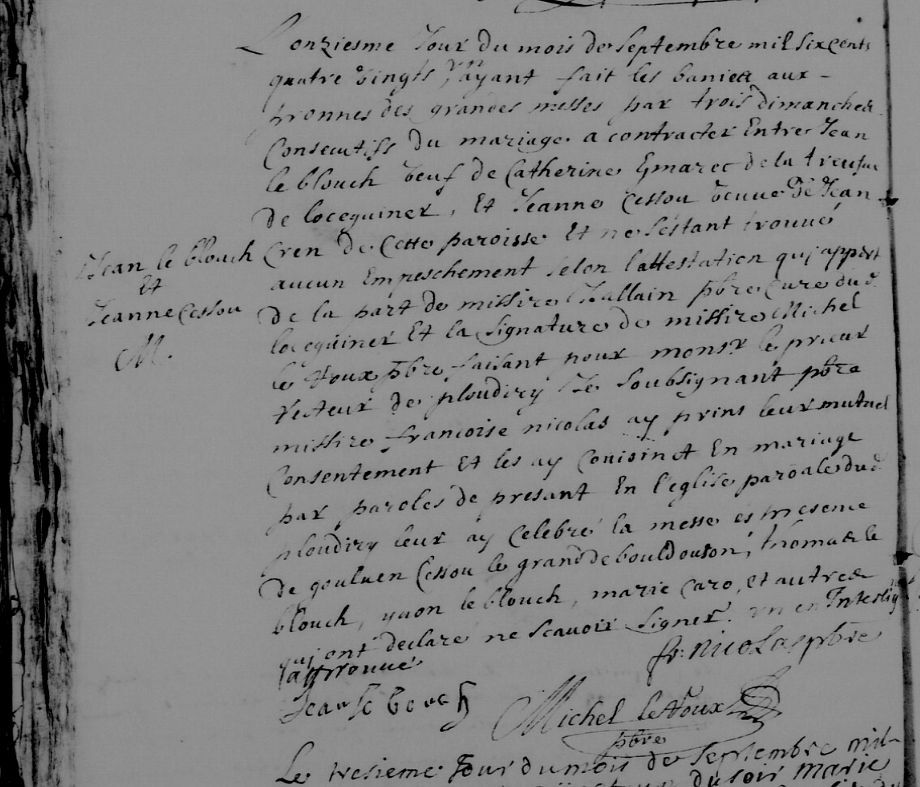 L'onziesme Jour du mois de septembre mil six cents
quatre vingts un ayant fait les baniees aux
pronnes des grandes messes par trois dimanches
Consecutifs du mariage a contracter Entre Jean
le blouch veuf de Catherine Emarec de la treufve
de locequiner, Et Jeanne Cessou veuve de Jean
Jean le blouch
et
Jeanne Cessou
M.
Cren de Cette paroisse Et ne s'estant trouvé
aucun Empeschement selon l'attestation qui appert
de la part de missire J hallain pbre Cure du d.
locequiner Et la signature de missire Michel
le Roux pbre faisant pour monsr le prieur
recteur de ploudiry Je soubsignant pbre
missire francoise nicolas ay prins leur mutuel
Consentement Et les ay conioinct En mariage
par paroles de presant En l'eglise paroale du d.
ploudiry leur ay Celebré la messe es presence
de gouluen Cessou le grand de bouldouron, thomas le
blouch, yuon le blouch, marie Caro, et autres
qui ont declare ne scavoir signer. un en Interligne
approuvé
fr: Nicolas pbre
Jean le blouch
Michel le Roux
pbre
Le tresieme Jour du mois de Septembre mil
du soir Marie